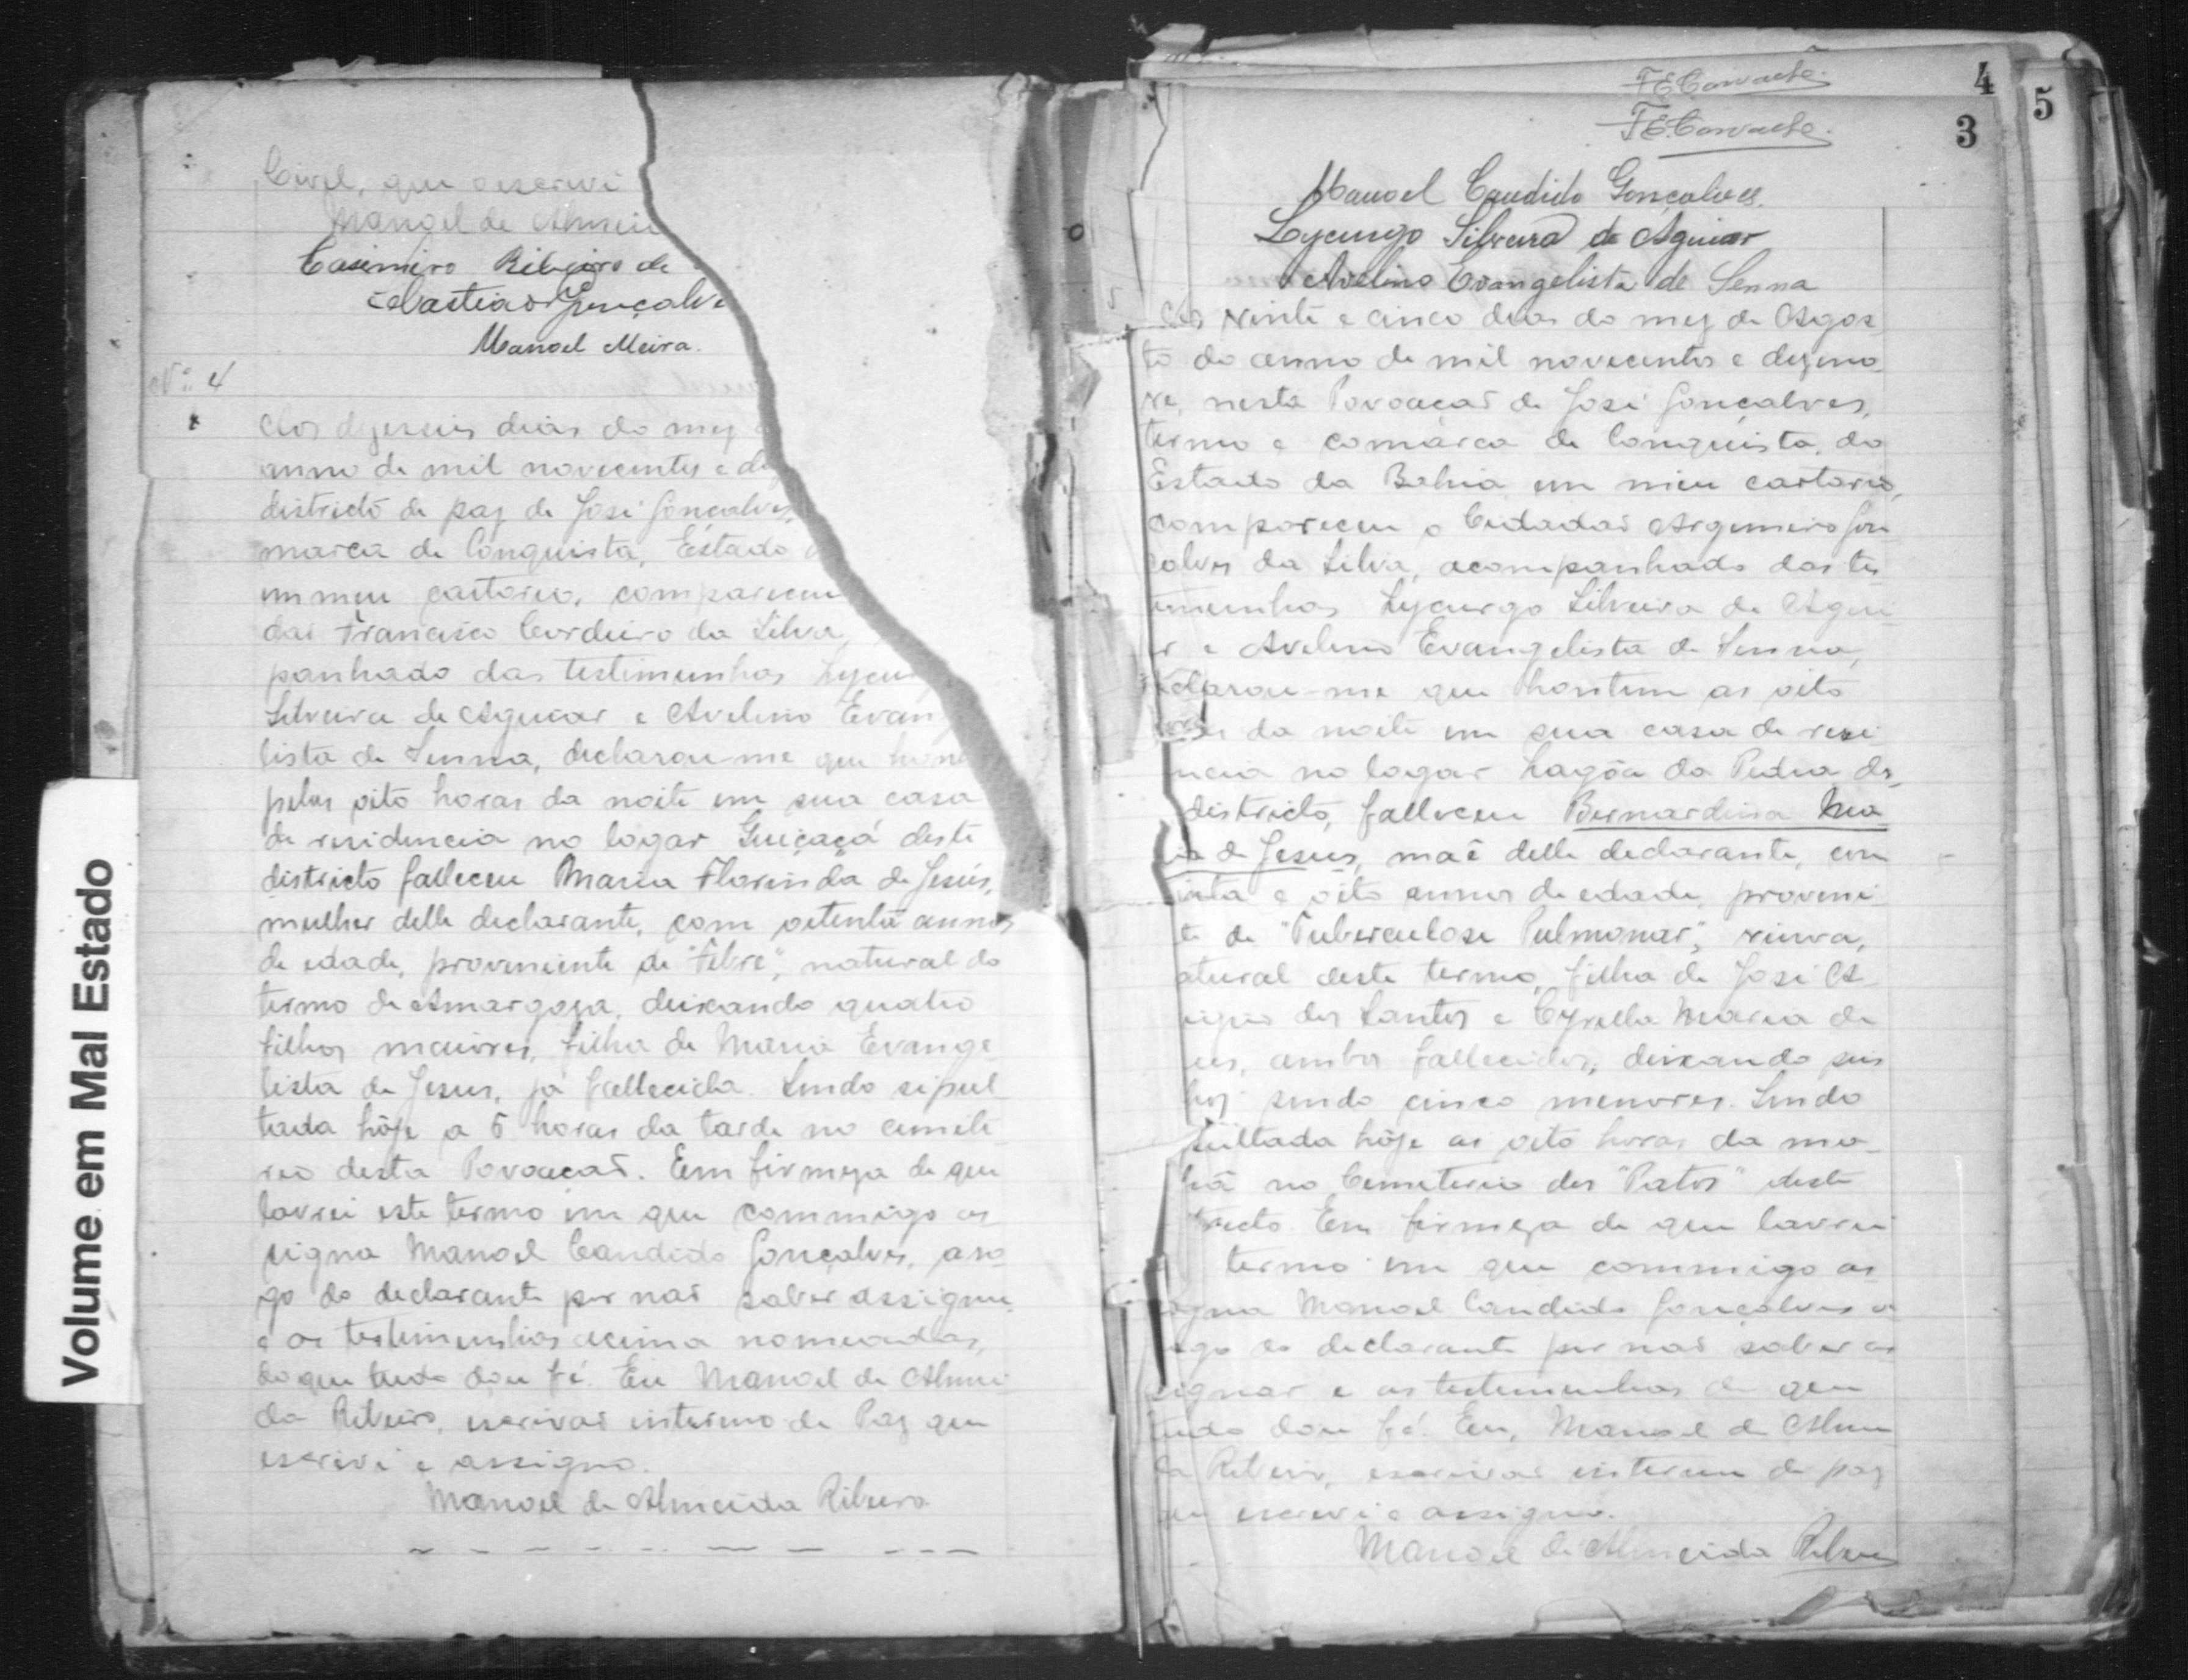 Civil, que o escrevi
Manoel de Almei
Casimiro Ribeiro de
Sebastião Gonçalve
Manoel Meira.
Nº 4
Aos dezesseis dias do mez
anno de mil novecentos e de
districto de paz de José Gonçalves,
marca de Conquista, Estado
em meu cartorio, compareceu
dão Francisco Cordeiro da Silva,
panhado das testimunhas Lycur
Silveira de Aguiar e Avelino Evan
lista de Senna, declarou-me que
pelas oito horas da noite em sua casa
de residencia no logar Guiçaçá deste
districto falleceu Maria Florinda de Jesús,
mulher delle declarante, com oitenta annos
de edade, proveniente de "Febre", natural do
termo de Amargoza, deixando quatro
filhos maiores, filha de Maria Evange
lista de Jesus, já fallecida. Sendo sepul
tada hôje a 5 horas da tarde no cemite
rio desta Povoação. Em firmeza de que
lavrei este termo em que commigo as
signa Manoel Candido Gonçalves, aro
go do declarante por não saber assignar
e as testimunhas acima nomeadas,
do que tudo dou fé. Eu Manoel de Almei
da Ribeiro, escrivão interino de Paz que
escrevi e assigno.
Manoel de Almeida Ribeiro
Volume em Mal Estado
F.E. Carvalho.
4
5
F.E. Carvalho.
3
Manoel Candido Gonçalves.
Lycurgo Silveira de Aguiar
Avelino Evangelista de Senna
Aos vinte e cinco dias do mez de Agos
to do anno de mil novecentos e dezeno
ve, nesta Povoação de José Gonçalves,
termo e comarca de Conquista, do
Estado da Bahia em meu cartorio,
compareceu o Cidadão Argemiro Gon
çalves da Silva, acompanhado das tes
timunhas Lycurgo Silveira de Agui
ar e Avelino Evangelista de Senna,
declarou-me que hontem as oito
horas da noite em sua casa de resi
encia no logar Lagôa da Pedra ds,
districto, falleceu Bernardina Ma
ria de Jesus, mãe delle declarante, com
inta e oito annos de edade, proveni
te de "Tuberculose Pulmonar", viuva,
atural deste termo, filha de José A
dos Santos e Cyrilla Maria de
us, ambos fallecidos, deixando seis
hos sendo cinco menores. Sendo
pultada hôje as oito horas da ma
hã no Cemiterio dos "Patos" deste
tricto. Em firmeza de que lavrei
termo em que commigo as
signa Manoel Candido Gonçalves a
rogo do declarante por não saber as
signar e as testimunhas de que
tudo dou fé. Eu, Manoel de Almei
da Ribeiro, escrivão interino de paz
que escrevi e assigno.
Manoel de Almeida Ribeiro